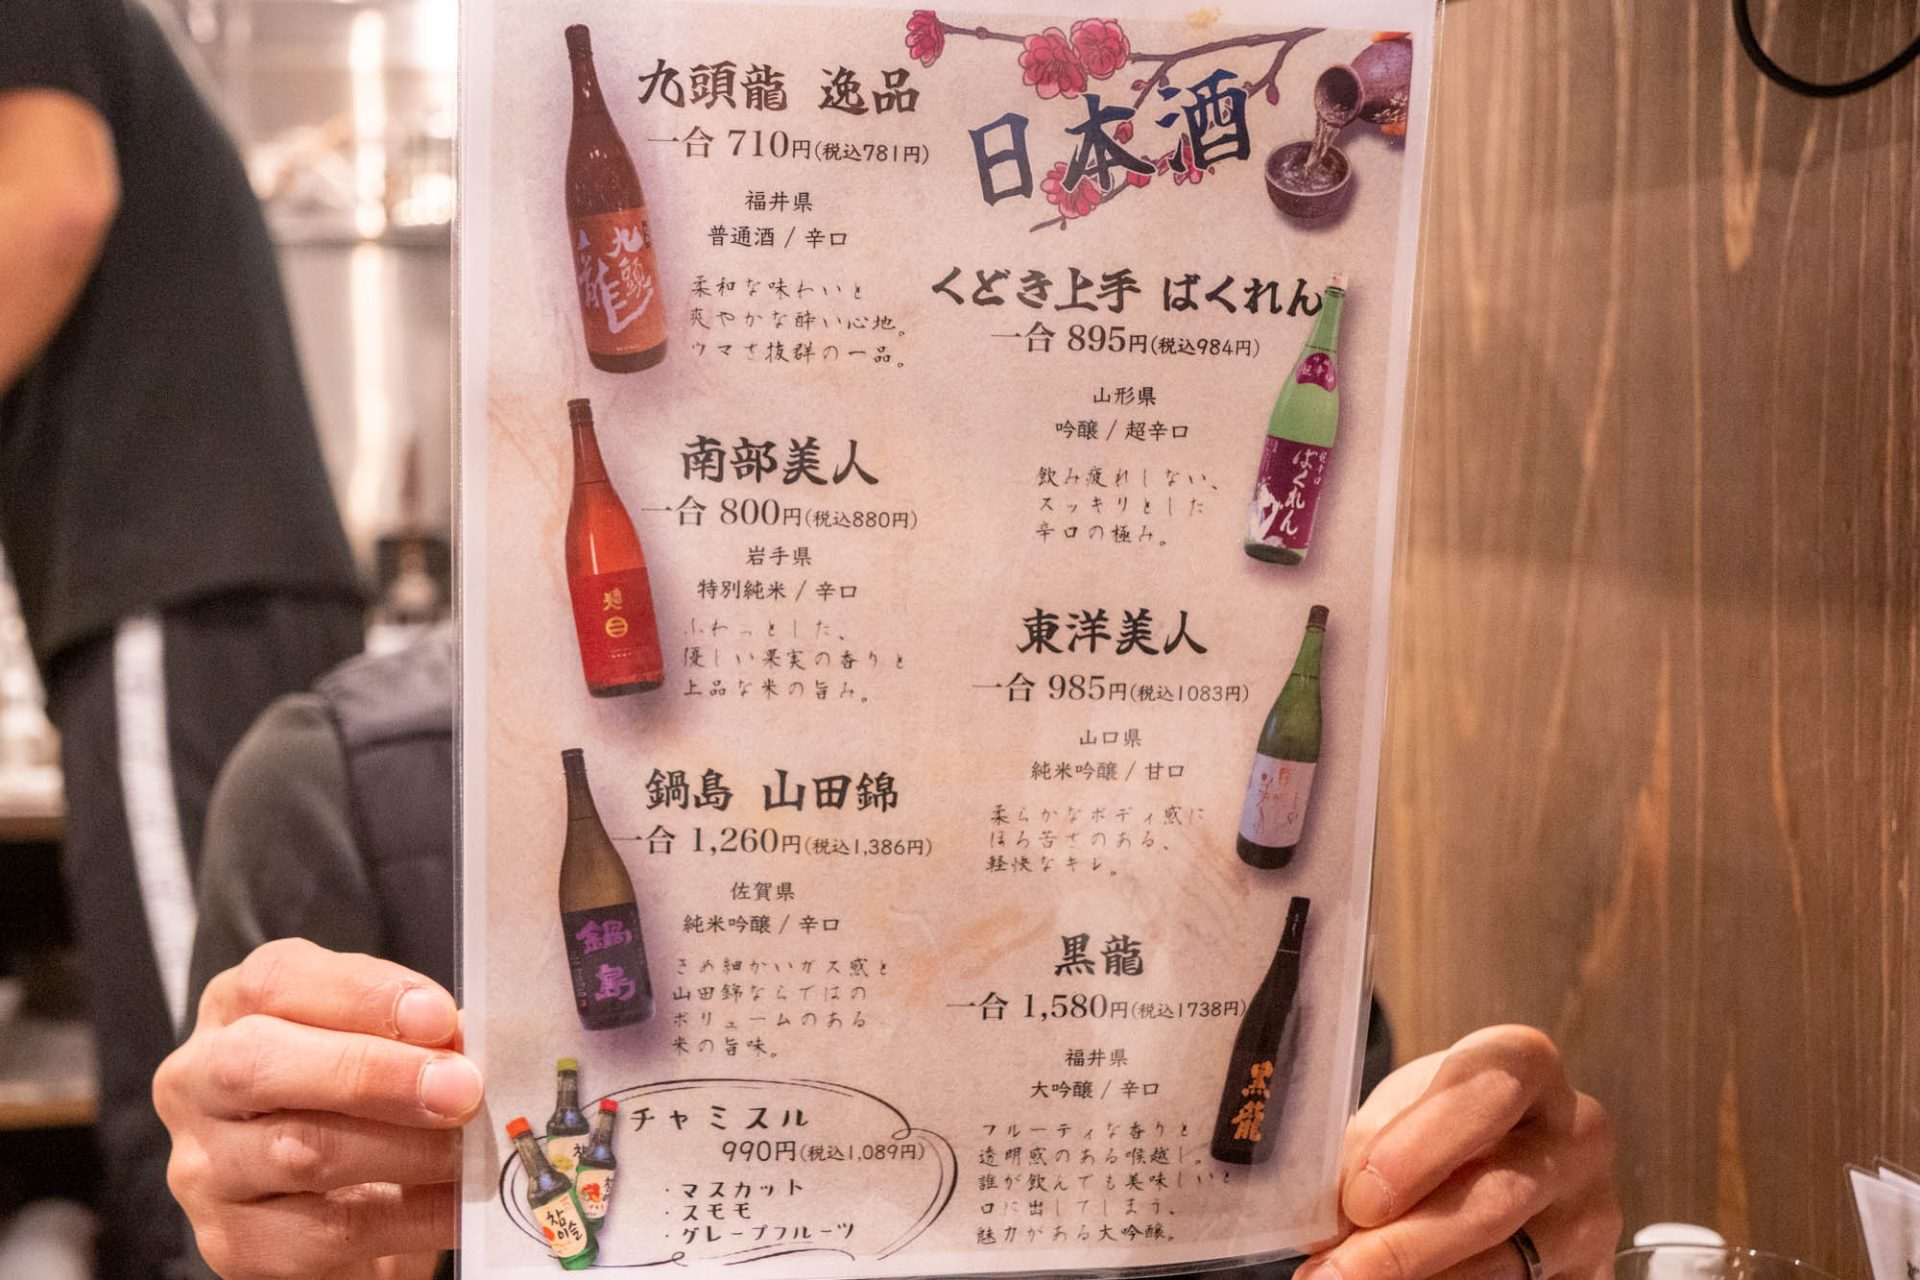 日本酒
九頭龍 逸品
一合 710円(税込781円)
福井県
普通酒 / 辛口
柔和な味わいと
爽やかな酔い心地。
ウマさ抜群の一品。
南部美人
一合 800円(税込880円)
岩手県
特別純米 / 辛口
ふわっとした、
優しい果実の香りと
上品な米の旨み。
鍋島 山田錦
一合 1,260円(税込1,386円)
佐賀県
純米吟醸 / 辛口
きめ細かいガス感と
山田錦ならではの
ボリュームのある
米の旨味。
チャミスル
990円(税込1,089円)
・マスカット
・スモモ
・グレープフルーツ
くどき上手 ばくれん
一合 895円(税込984円)
山形県
吟醸 / 超辛口
飲み疲れしない、
スッキリとした
辛口の極み。
東洋美人
一合 985円(税込1083円)
山口県
純米吟醸 / 甘口
柔らかなボディ感に
ほろ苦さのある、
軽快なキレ。
黒龍
一合 1,580円(税込1738円)
福井県
大吟醸 / 辛口
フルーティな香りと
透明感のある喉越し。
誰が飲んでも美味しいと
口に出してしまう、
魅力がある大吟醸。
九頭龍
鍋島
ばくれん
黒龍
참이슬